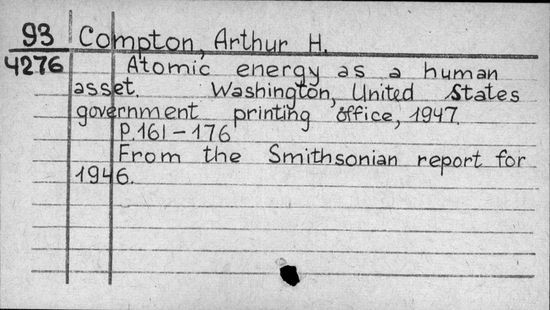 93 Compton, Arthur H.
4276 Atomic energy as a human
asset. Washington, United States
government printing office, 1947.
P. 161 – 176
From the Smithsonian report for
1946.